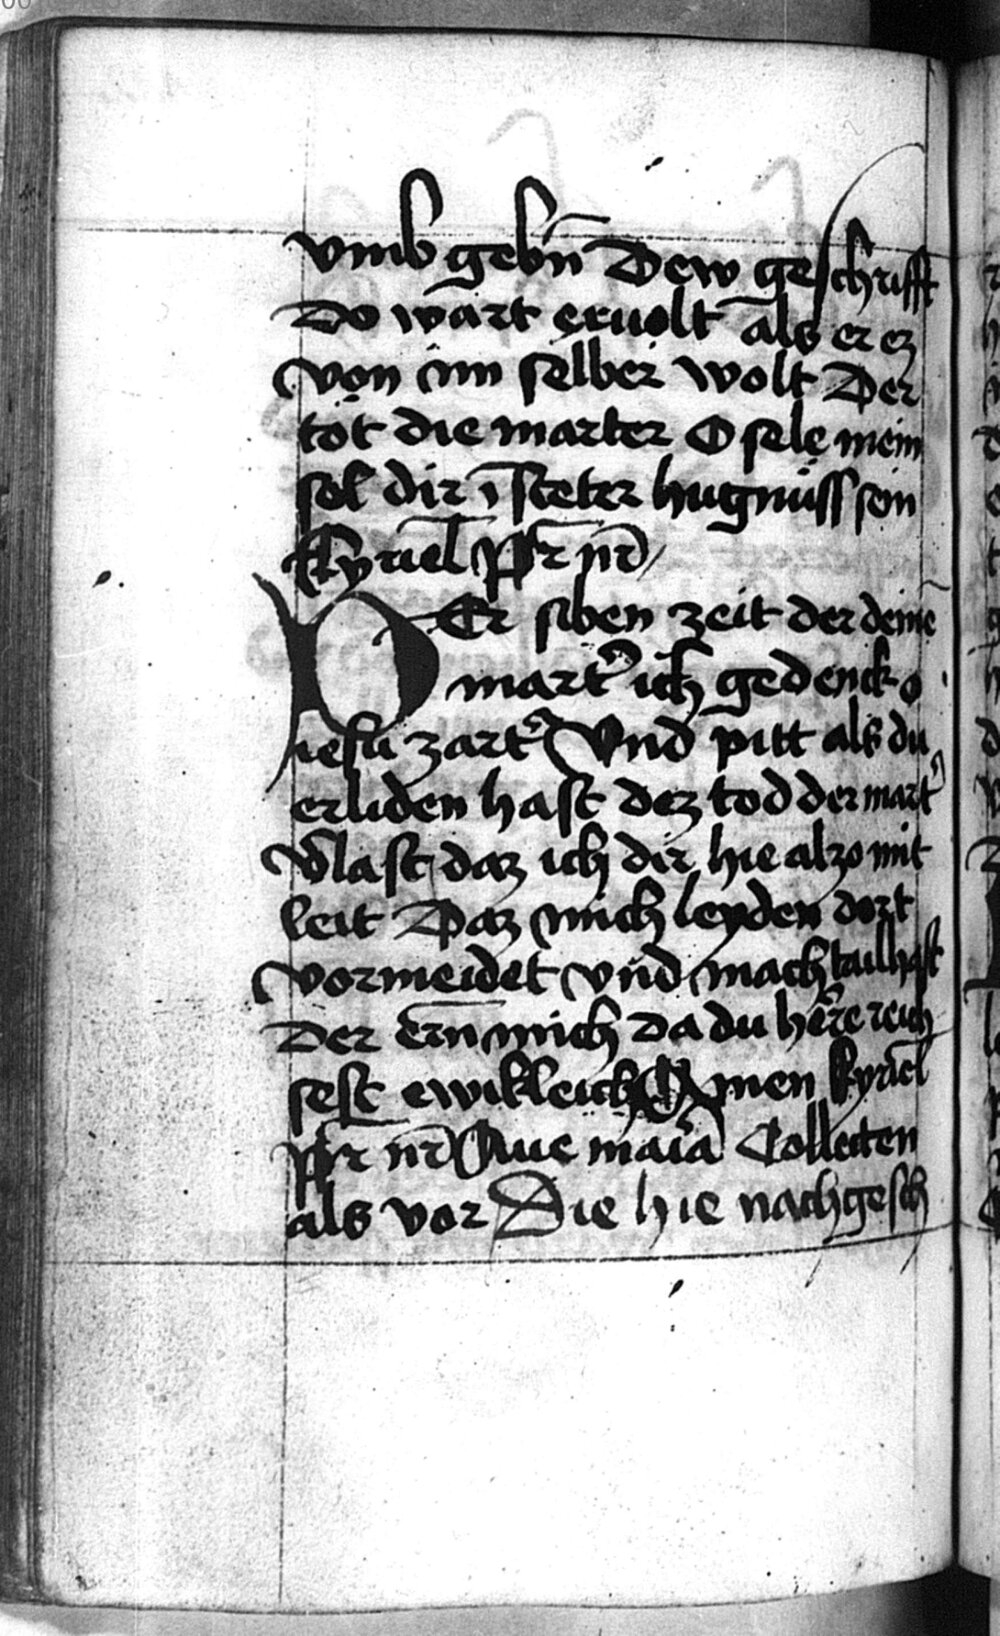 vmb gebn̄ Dew geschrifft
Do wart eruolt als er ez
von im selber wolt Der
tot die marter O sele mein
sol dir ī steter hugnüss sein
Kyriel Pr̄ nr̄
DEr siben zeit der deine
mart᷑ ich gedenck o
iesu zart᷑ Vnd pitt als du
erliden hast dez tod der mart᷑
v̄last daz ich dir hie alzo mit
leit Daz mich leyden dort
vormeidet vnd mach tailhaft
Der ern̄ mich da du herre reich
sest ewikleich Amen Kyriel
Pr̄ nr̄ Aue maīa Collecten
als vor Die hie nachgesch